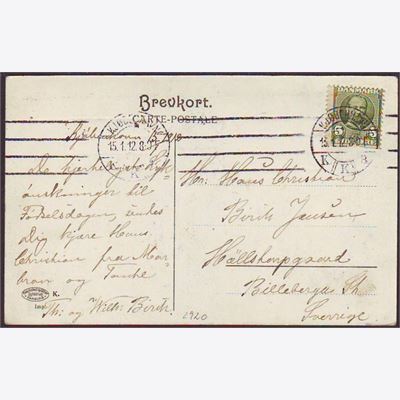 Brevkort.
CARTE-POSTALE
KJØBENHAVN
15.1.12.8-9
K. K.
KJØBENHAVN
15.1.12.8-9
K. K.
5 5
Kjøbenhavn
De kjærligste
ønskninger til
Fødselsdagen, sendes
Dig kjære Hans
Christian fra Mor-
bror og Tante
Th: og Wilh: Birch.
Hr: Hans Christian
Birch Jensen
Hällstorpgaard
Billeberga St.
Sverige.
K.
1920